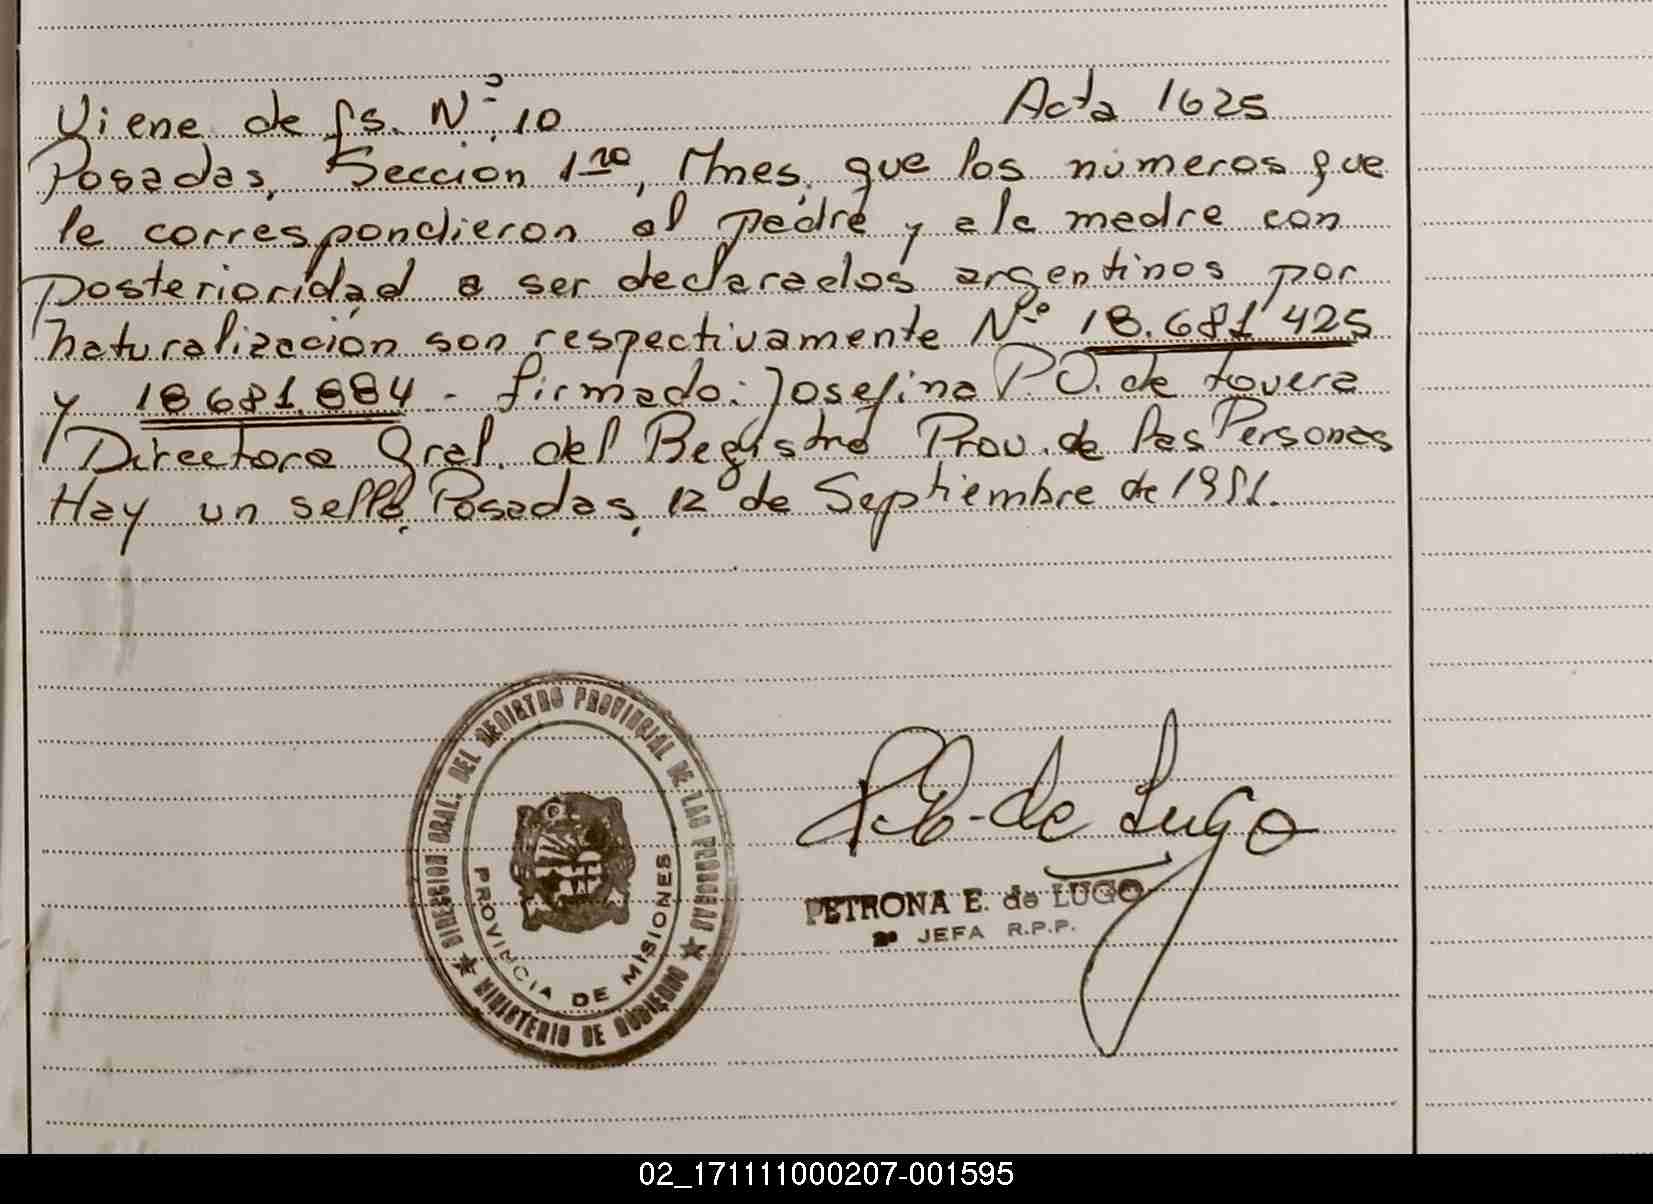 Viene de fs. Nº 10 Acta 1625
Posadas, Sección 1ra, Mnes. que los números que
le correspondieron al padre y a la madre con
posterioridad a ser declarados argentinos por
naturalización son respectivamente Nº 18.681.425
y 18681.884 - firmado: Josefina P.O. de Lovera
Directora Gral. del Registro Prov. de las Personas
Hay un sello, Posadas, 12 de Septiembre de 1981.
DIRECCION GRAL. DEL REGISTRO PROVINCIAL DE LAS PERSONAS
PROVINCIA DE MISIONES
MINISTERIO DE GOBIERNO
P.E. de Lugo
PETRONA E. de LUGO
2ª JEFA R.P.P.
02_171111000207-001595